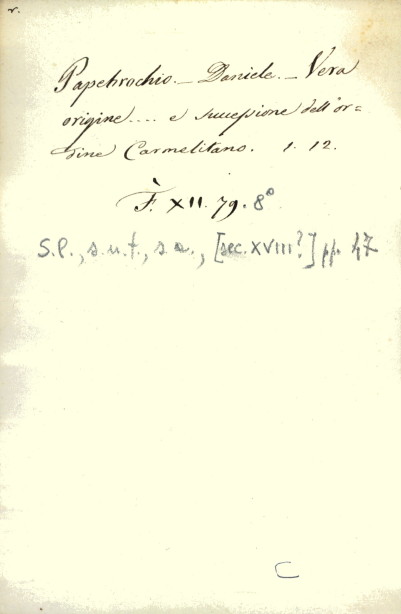 r.
Papebrochio. _ Daniele. _ Vera
origine.... e successione dell'or=
dine Carmelitano. 1. 12.
F. XII. 79. 8°
S.l., s.n.t., s.a., [sec. XVIII?] pp. 47
C